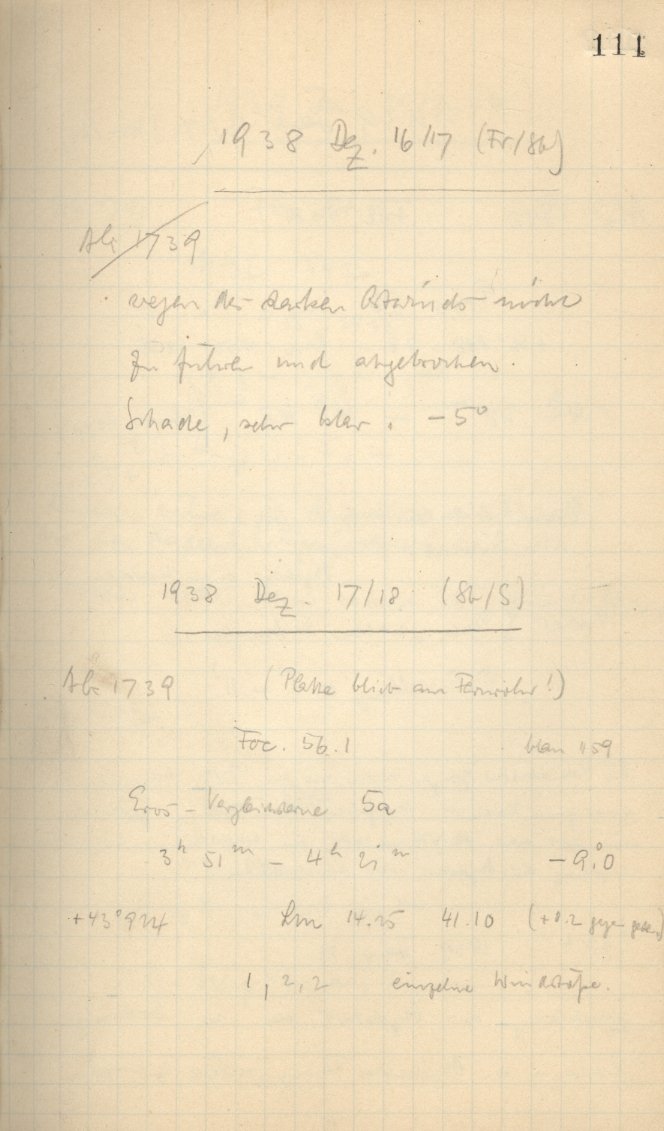 111
1938 Dez. 16/17 (Fr/Sb)
1739
wegen des starken Ostwinds nicht
zu führen und abgebrochen.
Schade, sehr klar. -5°
1938 Dez. 17/18 (Sb/S)
1739 (Platte blieb am Fernrohr!)
Foc. 56.1 blau
Eros-Vergleichsterne 5a
3h 51m - 4h 21m -9°.0
+43°924 14.25 41.10 (+0.2 gegen gestern)
1, 2, 2 einzelne Windstöße.